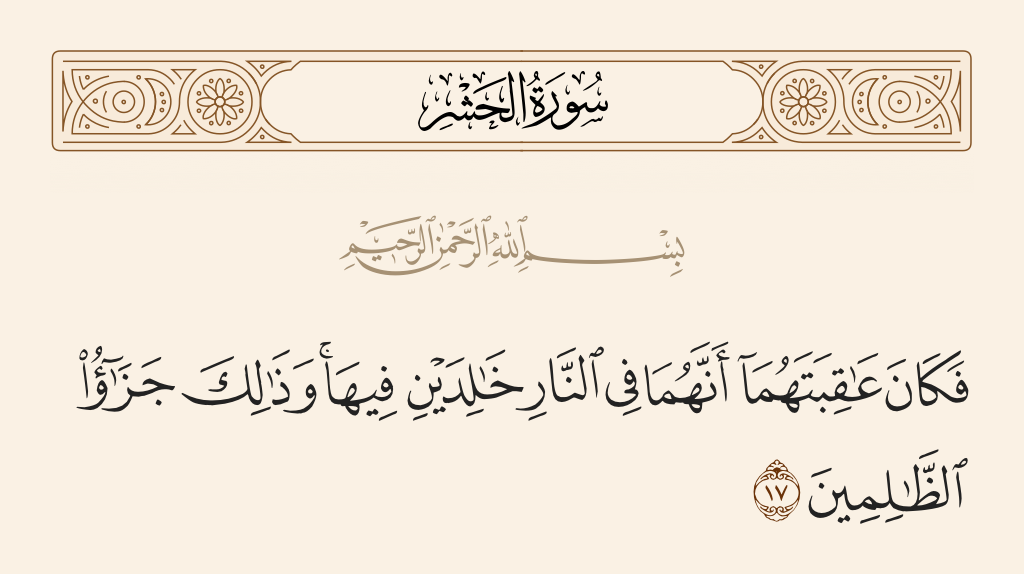 سُورَةُ الحَشْرِ
بِسْمِ ٱللَّهِ ٱلرَّحْمَٰنِ ٱلرَّحِيمِ
فَكَانَ عَٰقِبَتَهُمَآ أَنَّهُمَا فِى ٱلنَّارِ خَٰلِدَيْنِ فِيهَا ۚ وَذَٰلِكَ جَزَٰٓؤُا۟
ٱلظَّٰلِمِينَ ١٧